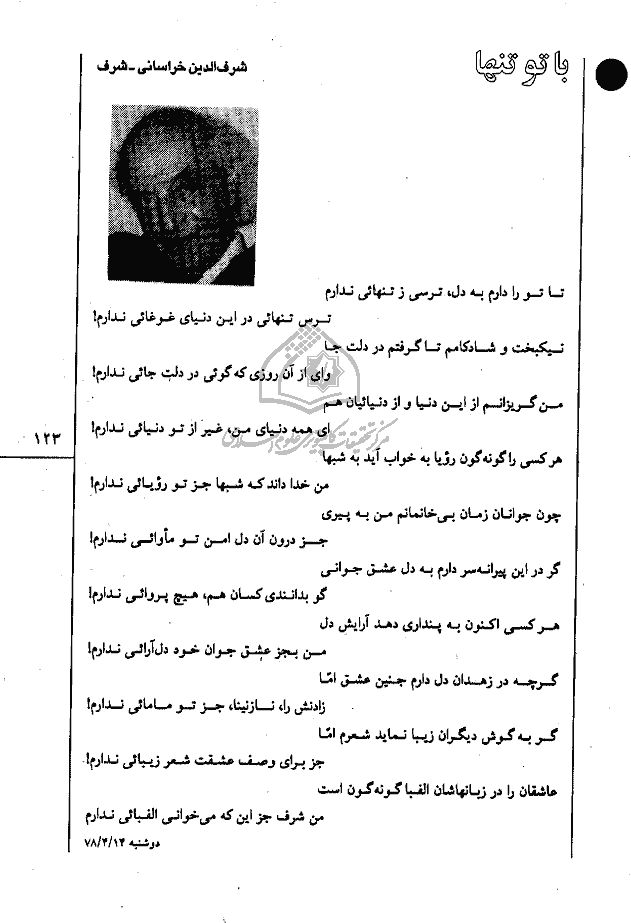 با تو تنها
شرف‌الدین خراسانی - شرف
تا تو را دارم به دل، ترسی ز تنهائی ندارم
ترس تنهائی در این دنیای غوغائی ندارم!
نیکبخت و شادکامم تا گرفتم در دلت جا
وای از آن روزی که گوئی در دلت جائی ندارم!
من گریزانم از این دنیا و از دنیائیان هم
ای همه دنیای من، غیر از تو دنیائی ندارم!
هر کسی را گونه‌گون رؤیا به خواب آید به شبها
من خدا داند که شبها جز تو رؤیائی ندارم!
چون جوانان زمان بی‌خانمانم من به پیری
جز درون آن دل امن تو مأوائی ندارم!
گر در این پیرانه‌سر دارم به دل عشق جوانی
گو بدانندی کسان هم، هیچ پروائی ندارم!
هر کسی اکنون به پنداری دهد آرایش دل
من بجز عشق جوان خود دل‌آرائی ندارم!
گرچه در زهدان دل دارم جنین عشق امّا
زادنش را، نازنینا، جز تو مامائی ندارم!
گر به گوش دیگران زیبا نماید شعرم امّا
جز برای وصف عشقت شعر زیبائی ندارم!
عاشقان را در زبانهاشان الفبا گونه‌گون است
من شرف جز این که می‌خوانی الفبائی ندارم
دوشنبه ۷۸/۴/۱۴
۱۲۳
مرکز تحقیقات کامپیوتری علوم اسلامی